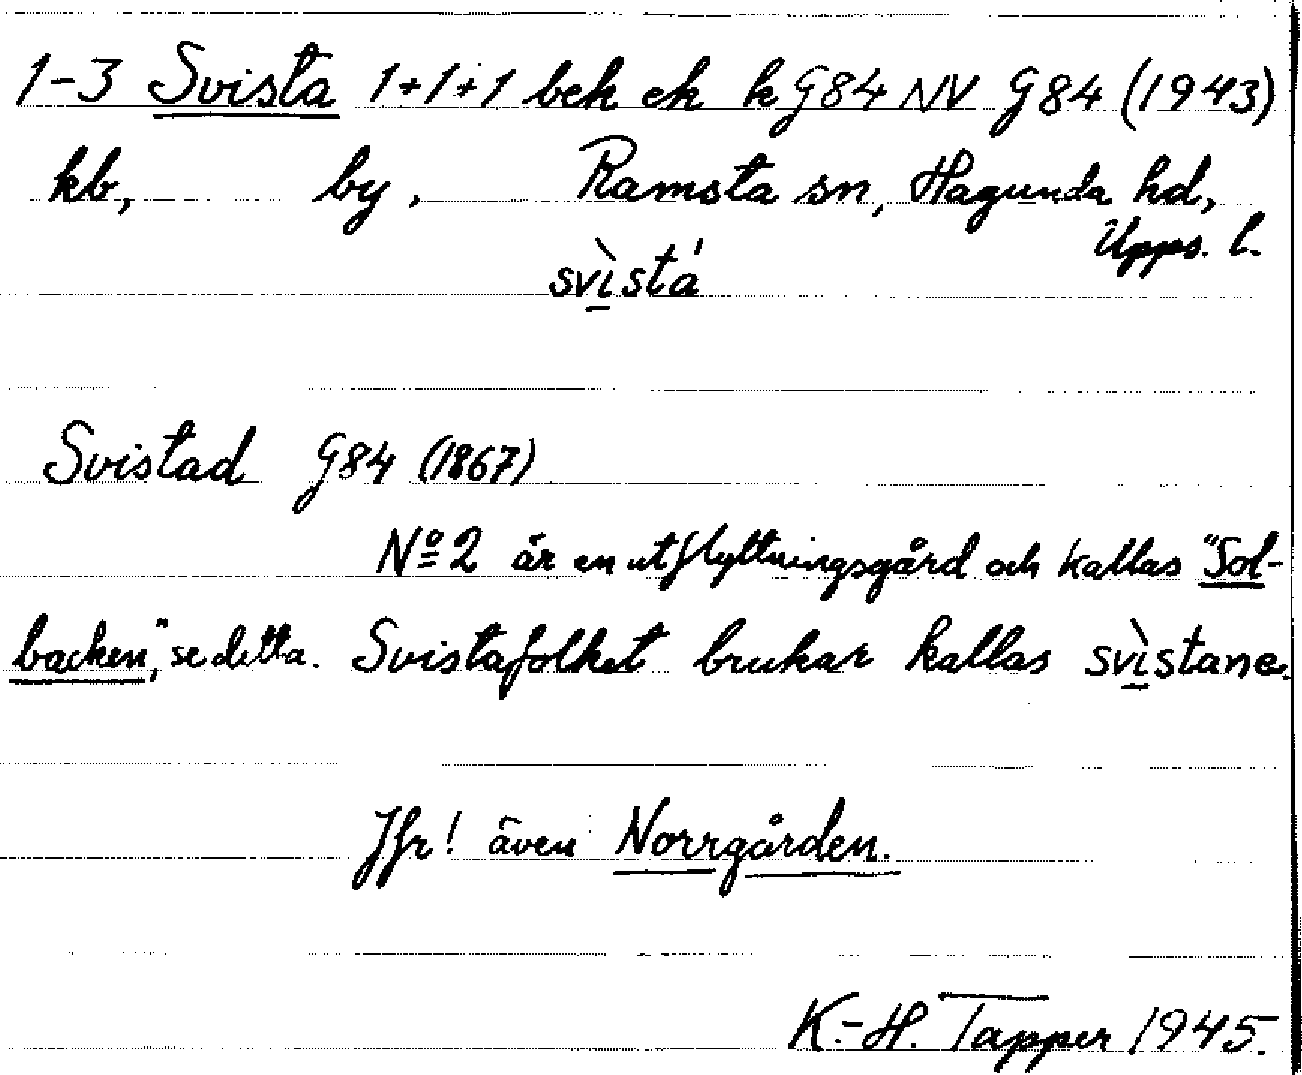 1-3 Svista 1+1+1 bek ek k G84 NV G84 (1943)
kb, by, Ramsta sn, Hagunda hd,
Upps. l.
svì̱stá
Svistad G84 (1867)
Nº 2 är en utflyttningsgård och kallas "Sol-
backen", se detta. Svistafolket brukar kallas svì̱stane.
Jfr! även Norrgården.
K.-H. Tapper 1945.